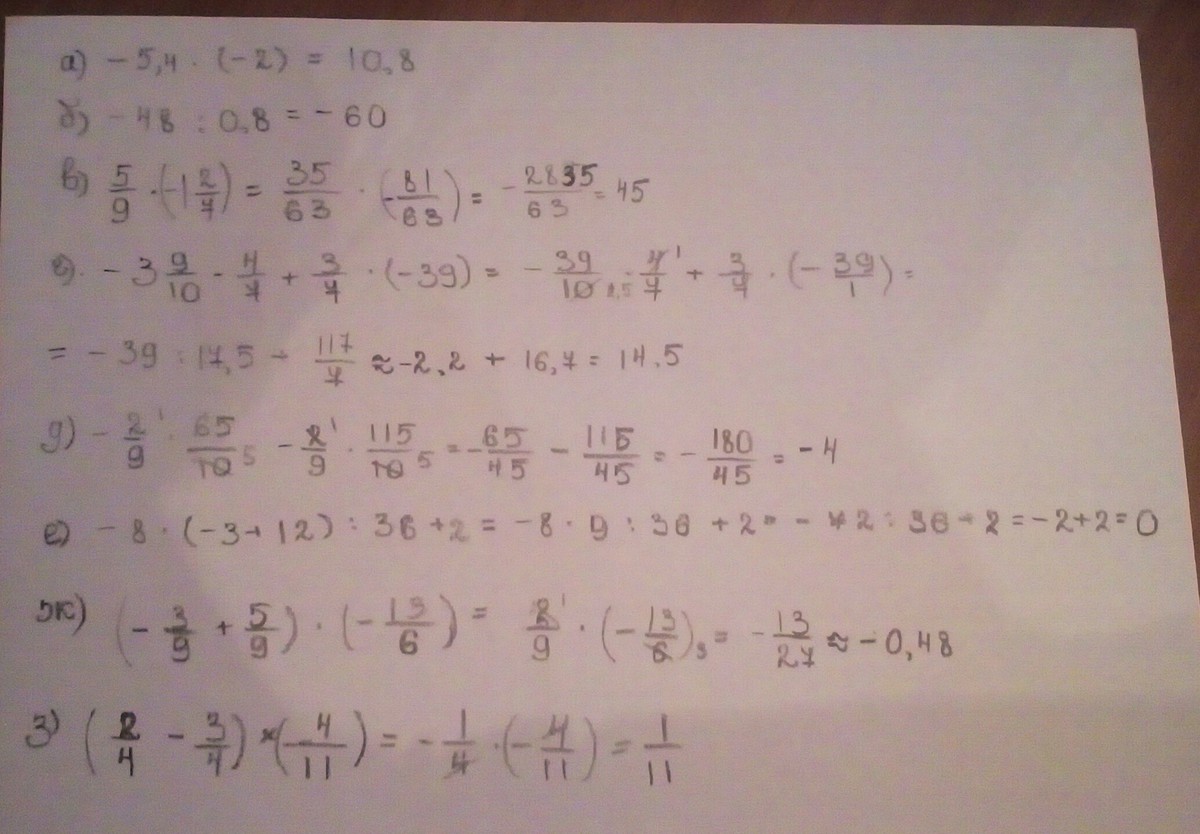 а) - 5,4 · (-2) = 10,8
б) - 48 : 0,8 = - 60
в) 5/9 · (-1 2/7) = 35/63 · (-81/63) = - 2835/63 = 45
- 3 9/10 · 4/7 + 3/7 · (-39) = - 39/10 2,5 · 4/7 1 + 3/7 · (- 39/1) =
= - 39 : 17,5 + 117/7 ≈ -2,2 + 16,7 = 14,5
д) - 2/9 1 · 65/10 5 - 2/9 1 · 115/10 5 = - 65/45 - 115/45 = - 180/45 = - 4
е) - 8 · (-3 + 12) : 36 + 2 = - 8 · 9 : 36 + 2 = - 72 : 36 + 2 = - 2 + 2 = 0
ж) (- 3/9 + 5/9) · (- 13/6) = 2/9 1 · (- 13/6) 3 = - 13/27 ≈ - 0,48
з) (2/4 - 3/4) × (- 4/11) = - 1/4 · (- 4/11) = 1/11